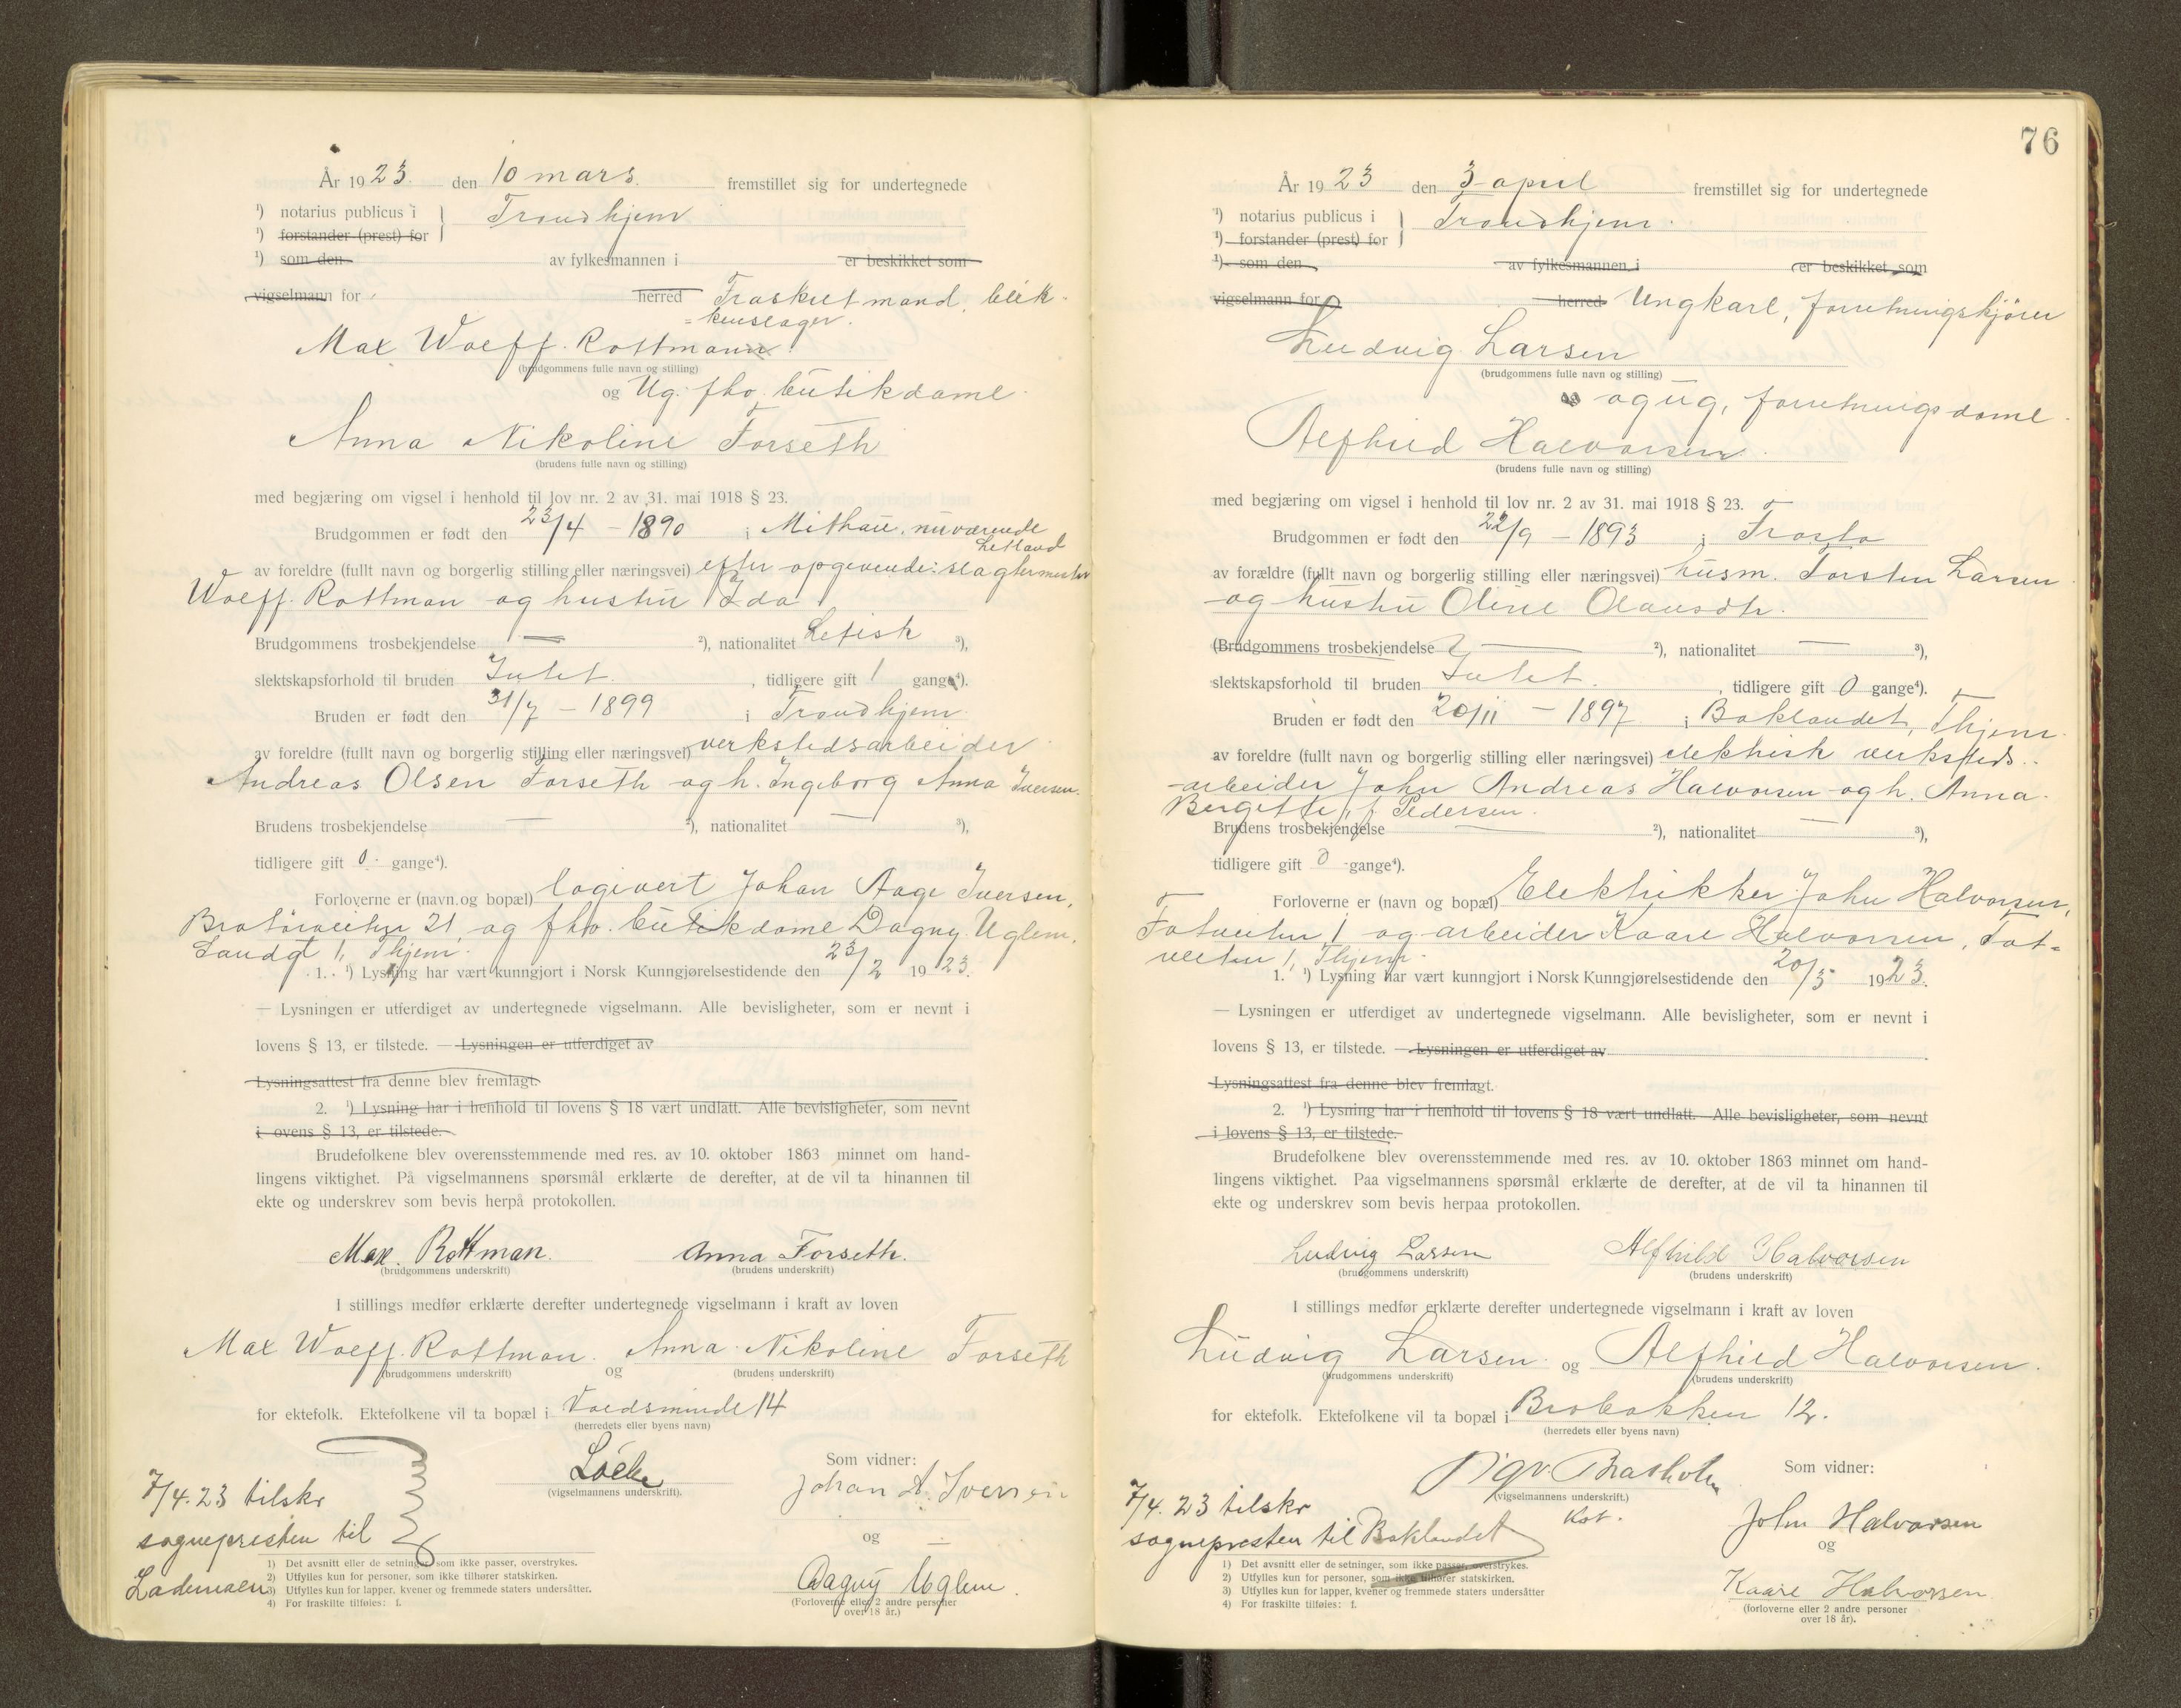 År 1923. den 10 mars. fremstillet sig for undertegnede
¹) notarius publicus i Trondhjem
¹) forstander (prest) for
¹) som den av fylkesmannen i er beskikket som
vigselmann for herred Fraskilt mand, blik-
kenslager.
Max Wolff Rottmann.
(brudgommens fulle navn og stilling)
og Ug. fhv. butikdame
Anna Nikoline Forseth
(brudens fulle navn og stilling)
med begjæring om vigsel i henhold til lov nr. 2 av 31. mai 1918 § 23.
Brudgommen er født den 23/4 - 1890 i Mithau, nuværende
Letland
av foreldre (fullt navn og borgerlig stilling eller næringsvei) efter opgivende: slagtermester
Wolff Rottman og hustru Ida
Brudgommens trosbekjendelse — ²), nationalitet Letisk ³),
slektskapsforhold til bruden Intet. , tidligere gift 1 gang⁴).
Bruden er født den 31/7 - 1899 i Trondhjem.
av foreldre (fullt navn og borgerlig stilling eller næringsvei) verkstedsarbeider
Andreas Olsen Forseth og h. Ingeborg Anna Iversen.
Brudens trosbekjendelse — ²), nationalitet — ³),
tidligere gift 0 gange⁴).
Forloverne er (navn og bopæl) logivert Johan Aage Iversen,
Bratørveiten 21, og fhv. butikdame Dagny Uglem,
Sandgt 1, Thjem.
1. ¹) Lysning har vært kunngjort i Norsk Kunngjørelsestidende den 23/2 1923.
— Lysningen er utferdiget av undertegnede vigselmann. Alle bevisligheter, som er nevnt i
lovens § 13, er tilstede. — Lysningen er utferdiget av
Lysningsattest fra denne blev fremlagt.
2. ¹) Lysning har i henhold til lovens § 18 vært undlatt. Alle bevisligheter, som nevnt
i ovens § 13, er tilstede.
Brudefolkene blev overensstemmende med res. av 10. oktober 1863 minnet om hand-
lingens viktighet. På vigselmannens spørsmål erklærte de derefter, at de vil ta hinannen til
ekte og underskrev som bevis herpå protokollen.
Max. Rottman. Anna Forseth.
(brudgommens underskrift) (brudens underskrift)
I stillings medfør erklærte derefter undertegnede vigselmann i kraft av loven
Max Wolff Rottman. Anna Nikoline Forseth
(brudgommens underskrift) og (brudens underskrift)
for ektefolk. Ektefolkene vil ta bopæl i Voldsminde 14
(herredets eller byens navn)
Som vidner:
(vigselmannens underskrift).
Johan A. Iversen
og
Dagny Uglem.
(Forloverne eller 2 andre personer
over 18 år.)
7/4.23 tilskr
sognepresten til
Lademoen
1) Det avsnitt eller de setninger som ikke passer, overstrykes.
2) Utfylles kun for personer, som ikke tilhører statskirken.
3) Utfylles kun for lapper, kvener og fremmede staters undersåtter.
4) For fraskilte tilføies: f.
76
År 1923 den 3 april fremstillet sig for undertegnede
¹) notarius publicus i Trondhjem.
¹) forstander (prest) for
¹) som den av fylkesmannen i er beskikket som
vigselmann for herred Ungkarl, forretningskjører
Ludvig Larsen
(brudgommens fulle navn og stilling)
og ug, forretningsdame
Alfhild Halvorsen.
(brudens fulle navn og stilling)
med begjæring om vigsel i henhold til lov nr. 2 av 31. mai 1918 § 23.
Brudgommen er født den 22/9 - 1893 i Frosta
av forældre (fullt navn og borgerlig stilling eller næringsvei) husm. Torsten Larsen
og hustru Oline Olausdtr.
(Brudgommens trosbekjendelse — ²), nationalitet — ³),
slektskapsforhold til bruden Intet. , tidligere gift 0 gange⁴).
Bruden er født den 20/11 - 1897 i Baklandet, Thjem.
av foreldre (fullt navn og borgerlig stilling eller næringsvei) elektrisk verksteds-
arbeider John Andreas Halvorsen og h. Anna
Bergitte f. Pedersen.
Brudens trosbekjendelse — ²), nationalitet — ³),
tidligere gift 0 gange⁴).
Forloverne er (navn og bopæl) Elektrikker John Halvorsen,
Totveiten 1 og arbeider Kaare Halvorsen, Tot-
veiten 1, Thjem.
1. ¹) Lysning har vært kunngjort i Norsk Kunngjørelsestidende den 20/3 1923.
— Lysningen er utferdiget av undertegnede vigselmann. Alle bevisligheter, som er nevnt i
lovens § 13, er tilstede. — Lysningen er utferdiget av
Lysningsattest fra denne blev fremlagt.
2. ¹) Lysning har i henhold til lovens § 18 vært undlatt. Alle bevisligheter, som nevnt
i lovens § 13, er tilstede.
Brudefolkene blev overensstemmende med res. av 10. oktober 1863 minnet om hand-
lingens viktighet. Paa vigselmannens spørsmål erklærte de derefter, at de vil ta hinannen til
ekte og underskrev som bevis herpaa protokollen.
Ludvig Larsen Alfhild Halvorsen
(brudgommens underskrift) (brudens underskrift)
I stillings medfør erklærte derefter undertegnede vigselmann i kraft av loven
Ludvig Larsen og Alfhild Halvorsen.
(brudgommens underskrift) (brudens underskrift)
for ektefolk. Ektefolkene vil ta bopæl i Brobakken 12.
(herredets eller byens navn)
Som vidner:
(vigselmannens underskrift.)
Kst.
John Halvorsen
og
Kaare Halvorsen
(forloverne eller 2 andre personer
over 18 år).
7/4.23 tilskr
sognepresten til Baklandet
1) Det avsnitt eller de setninger, som ikke passer, overstrykes.
2) Utfylles kun for personer, som ikke tilhører statskirken.
3) Utfylles kun for lapper, kvener og fremmede staters undersåtter
4) For fraskilte tilføies: f.